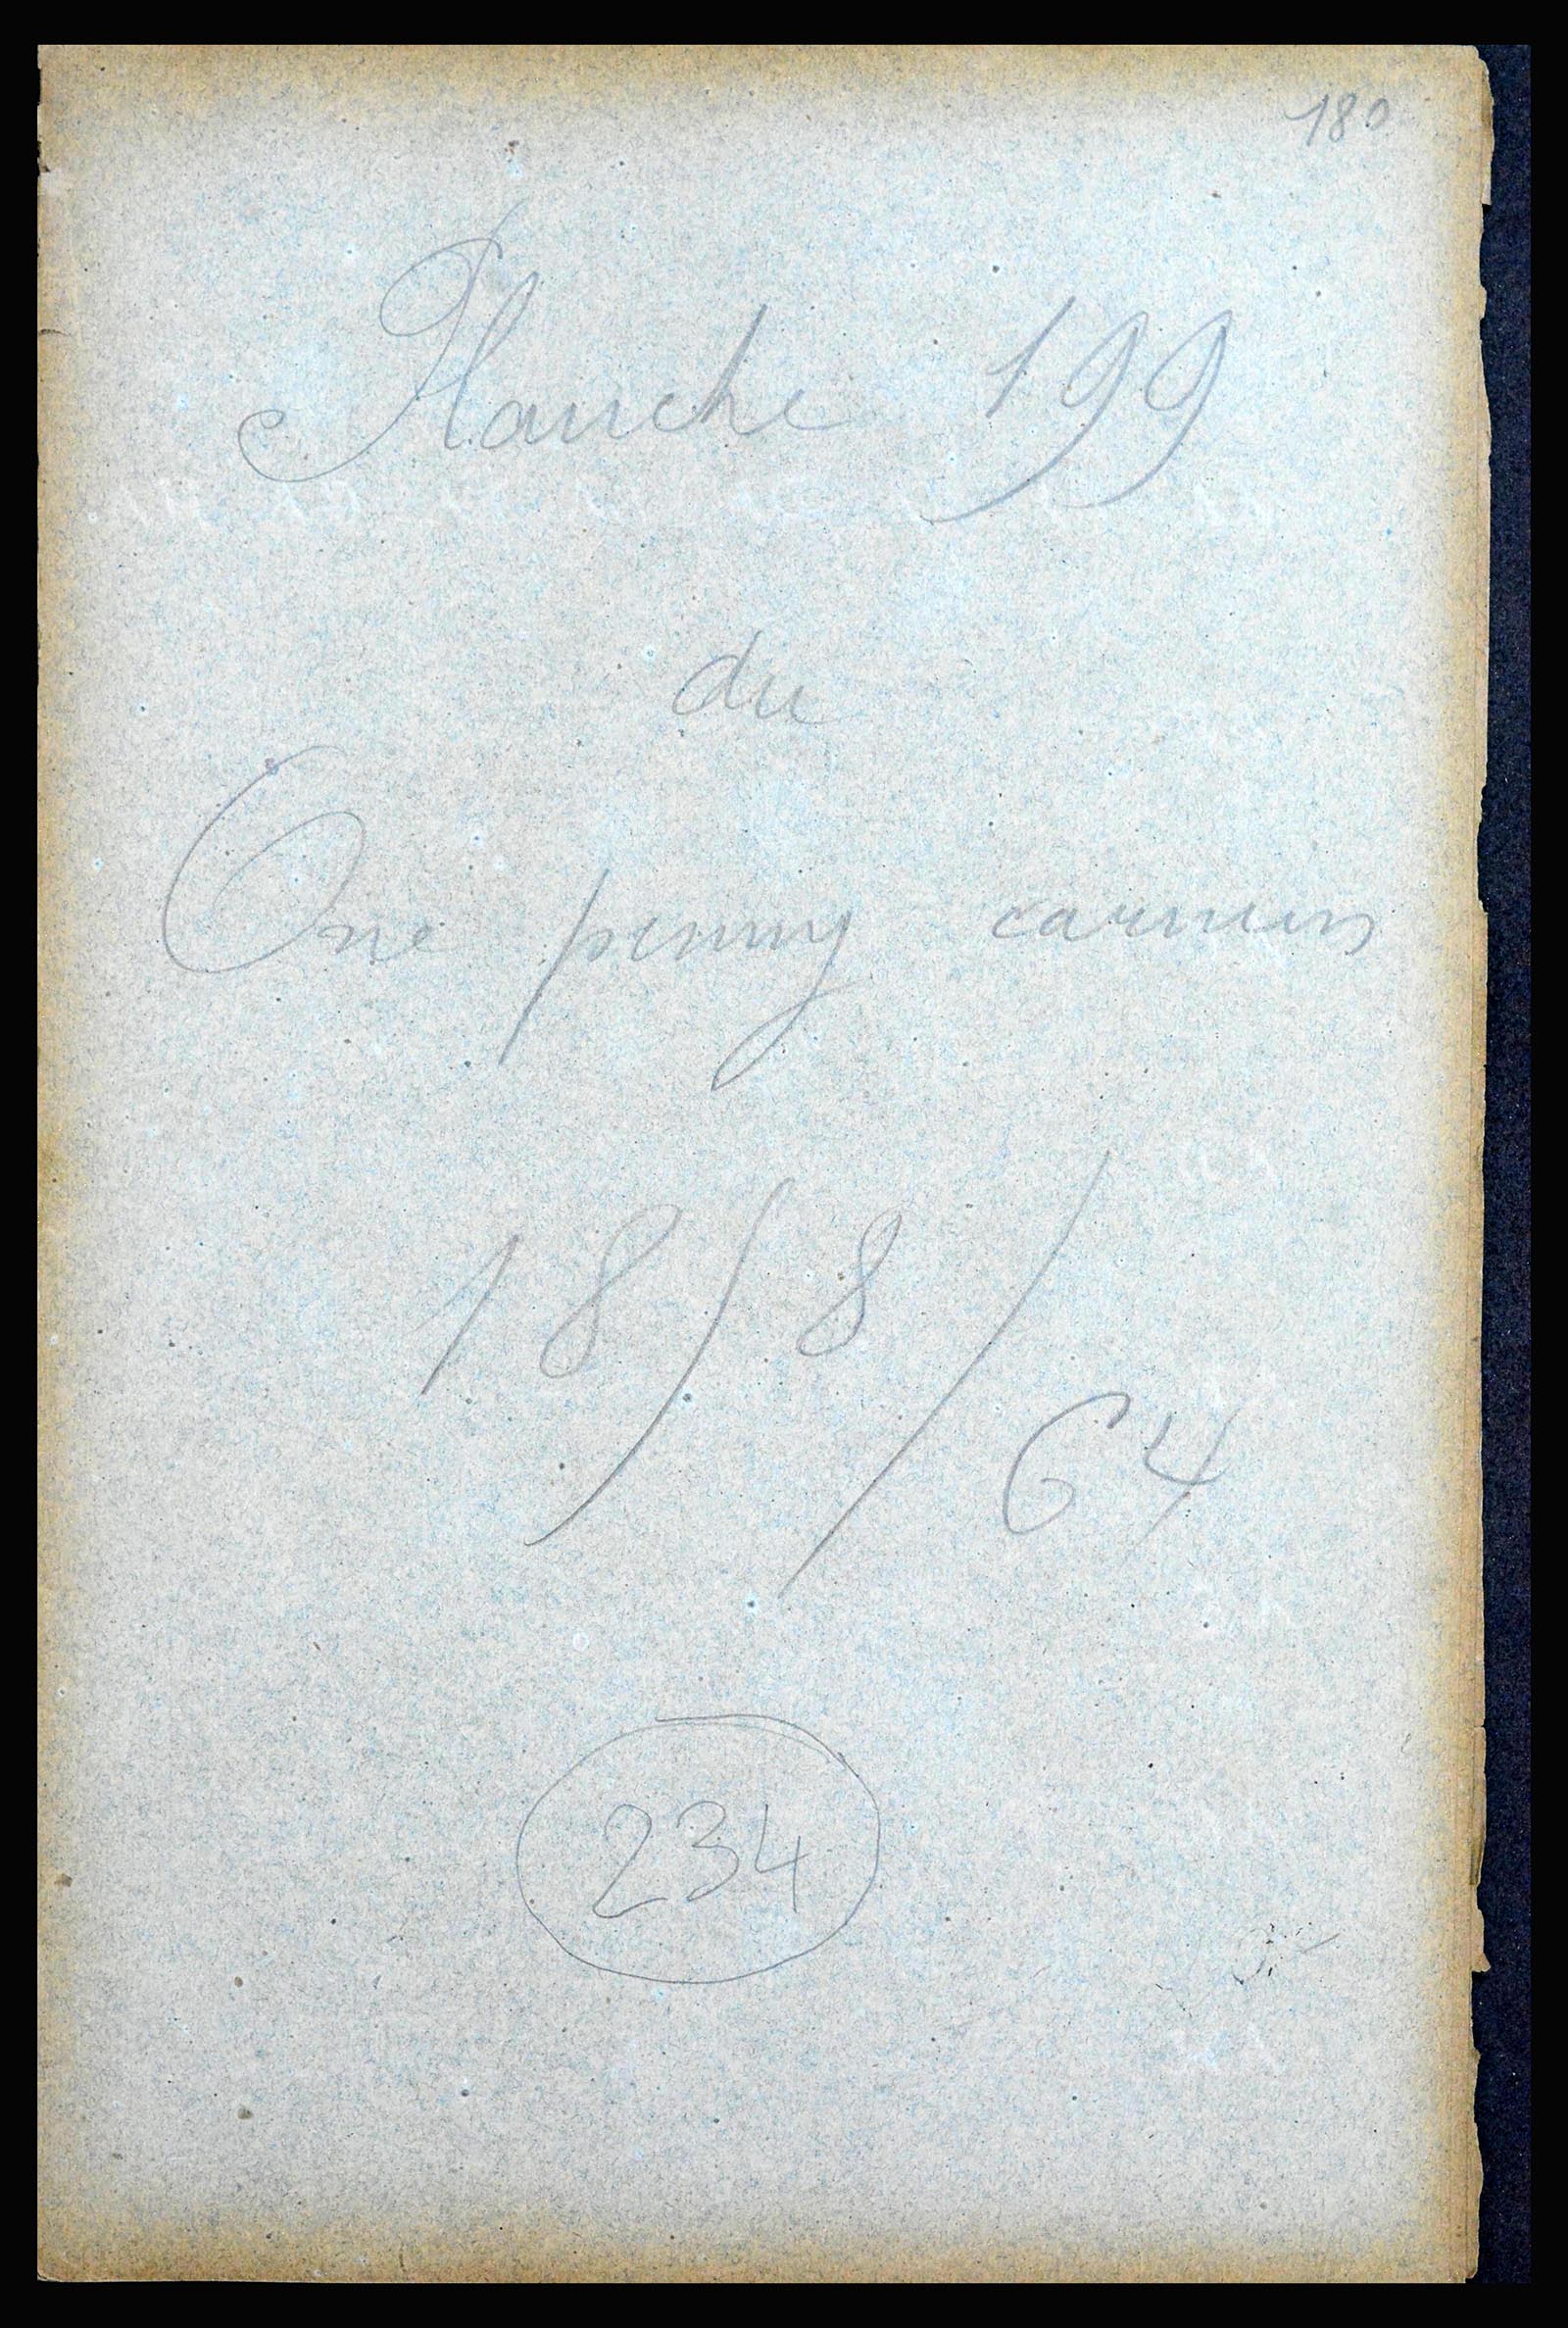 180
Planche 199
du
One penny carmin
1858/64
234